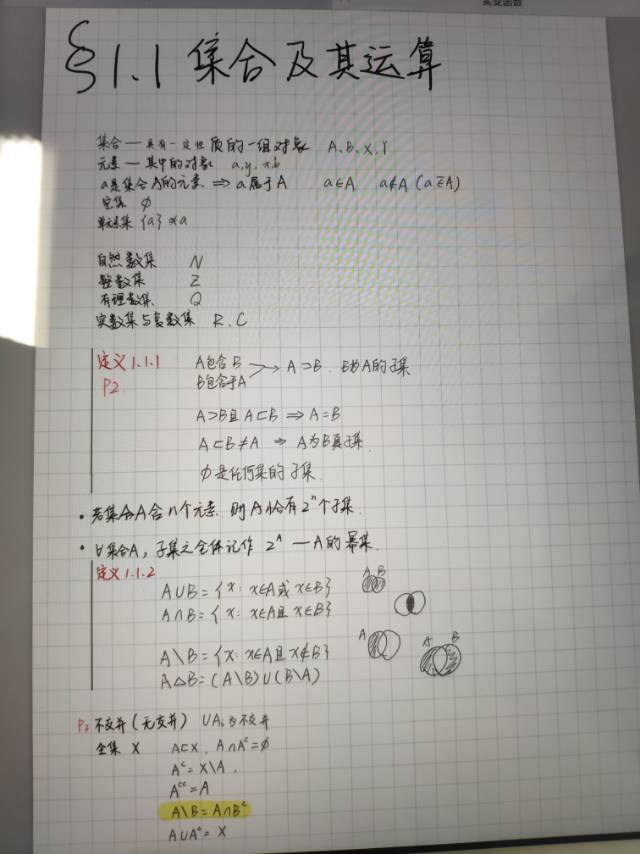 实变函数
§1.1 集合及其运算
集合—具有一定性质的一组对象 A、B、X、Y
元素—其中的对象 a,y,x,b
a是集合A的元素 ⇒ a属于A a∈A a∉A (a∈̄A)
空集 ∅
单元素集 {a} ≠a
自然数集 N
整数集 Z
有理数集 Q
实数集与复数集 R、C
定义1.1.1 A包含B
P2 B包含于A A⊃B. B为A的子集
A⊃B且A⊂B ⇒ A=B
A⊂B≠A ⇒ A为B真子集.
∅是任何集的子集.
· 若集合A含n个元素. 则A恰有2ⁿ个子集.
· ∀集合A, 子集之全体记作 2ᴬ —A的幂集.
定义1.1.2
A∪B={x: x∈A或x∈B} A B
A∩B={x: x∈A且x∈B}
A\B={x: x∈A且x∉B} A
A△B=(A\B)∪(B\A) A B
不交并(无交并) ∪Aᵢ为不交并
全集 X A⊂X, A∩Aᶜ=∅
Aᶜ=X\A,
Aᶜᶜ=A
A\B=A∩Bᶜ
A∪Aᶜ=X